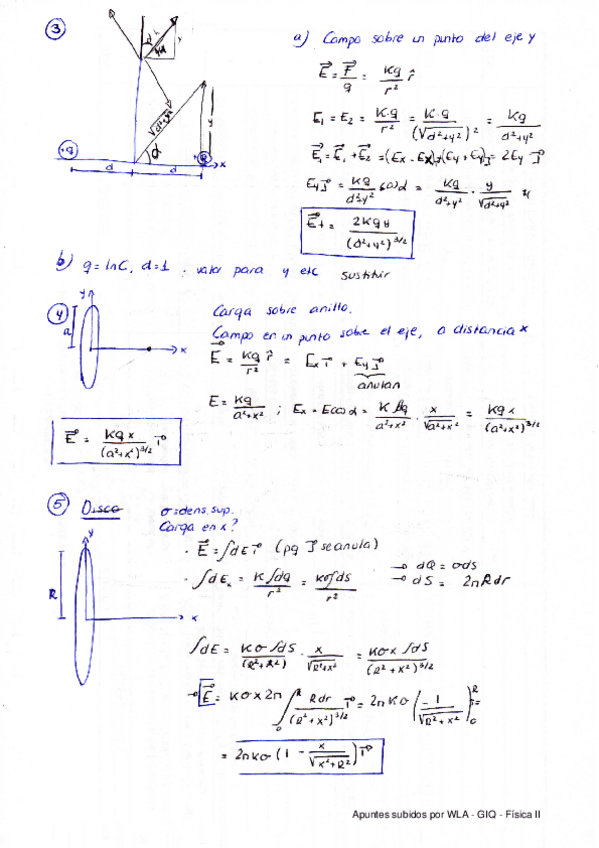 ③
a) Campo sobre un punto del eje y
E⃗ = F⃗/q = Kq/r² r̂
E₁ = E₂ = K·q/r² = K·q/(√(d²+y²))² = Kq/(d²+y²)
√(d²+y²)
α
+q
d d x
E⃗ₜ = E⃗₁ + E⃗₂ = (Ex - Ex) + (Ey + Ey) = 2Ey J⃗
Ey J⃗ = Kq/(d²+y²) cosα = Kq/(d²+y²) · y/√(d²+y²)
E⃗t = 2Kqy/(d²+y²)^3/2
b) q = 1nC, d=1 . valor para y etc sustituir
④
y
a
x
Carga sobre anillo.
Campo en un punto sobre el eje, a distancia x
E⃗ = Kq/r² r̂ = Ex i⃗ + Ey J⃗
anulan
E = Kq/(a²+x²) ; Ex = E cosα = Kq/(a²+x²) · x/√(a²+x²) = Kqx/(a²+x²)^3/2
E⃗ = Kqx/(a²+x²)^3/2 i⃗
⑤ Disco
σ=dens. sup.
Carga en x?
y
R
x
· E⃗ = ∫dE i⃗ (pq J⃗ se anula)
· ∫dEx = K∫dq/r² = Kσ∫dS/r²
→ dQ = σdS
→ dS = 2πRdr
∫dE = Kσ∫dS/(R²+R²) · x/√(R²+x²) = Kσx∫dS/(R²+x²)^3/2
→ E⃗ = Kσx2π ∫₀ᴿ Rdr/(R²+x²)^3/2 i⃗ = 2πKσ (-1/√(R²+x²))₀ᴿ i⃗ =
= 2πkσ (1 - x/√(x²+R²)) i⃗
Apuntes subidos por WLA - GIQ - Física II